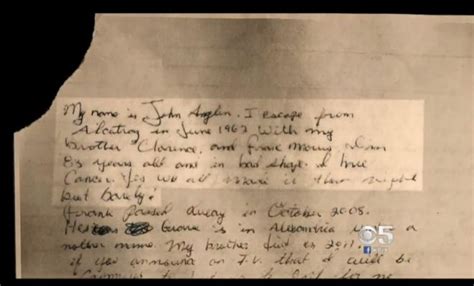 My name is John Anglin. I escape from
Alcatraz in June 1962 With my
brother Clarence, and Frank Morris. I'm
83 years old and in bad shape. I have
Cancer. Yes we all made it that night
but barely!
Frank passed away in October 2008.
His grave is in Alexandria under
another name. My brother died in 2011.
If you announce on T.V. that I will be
5